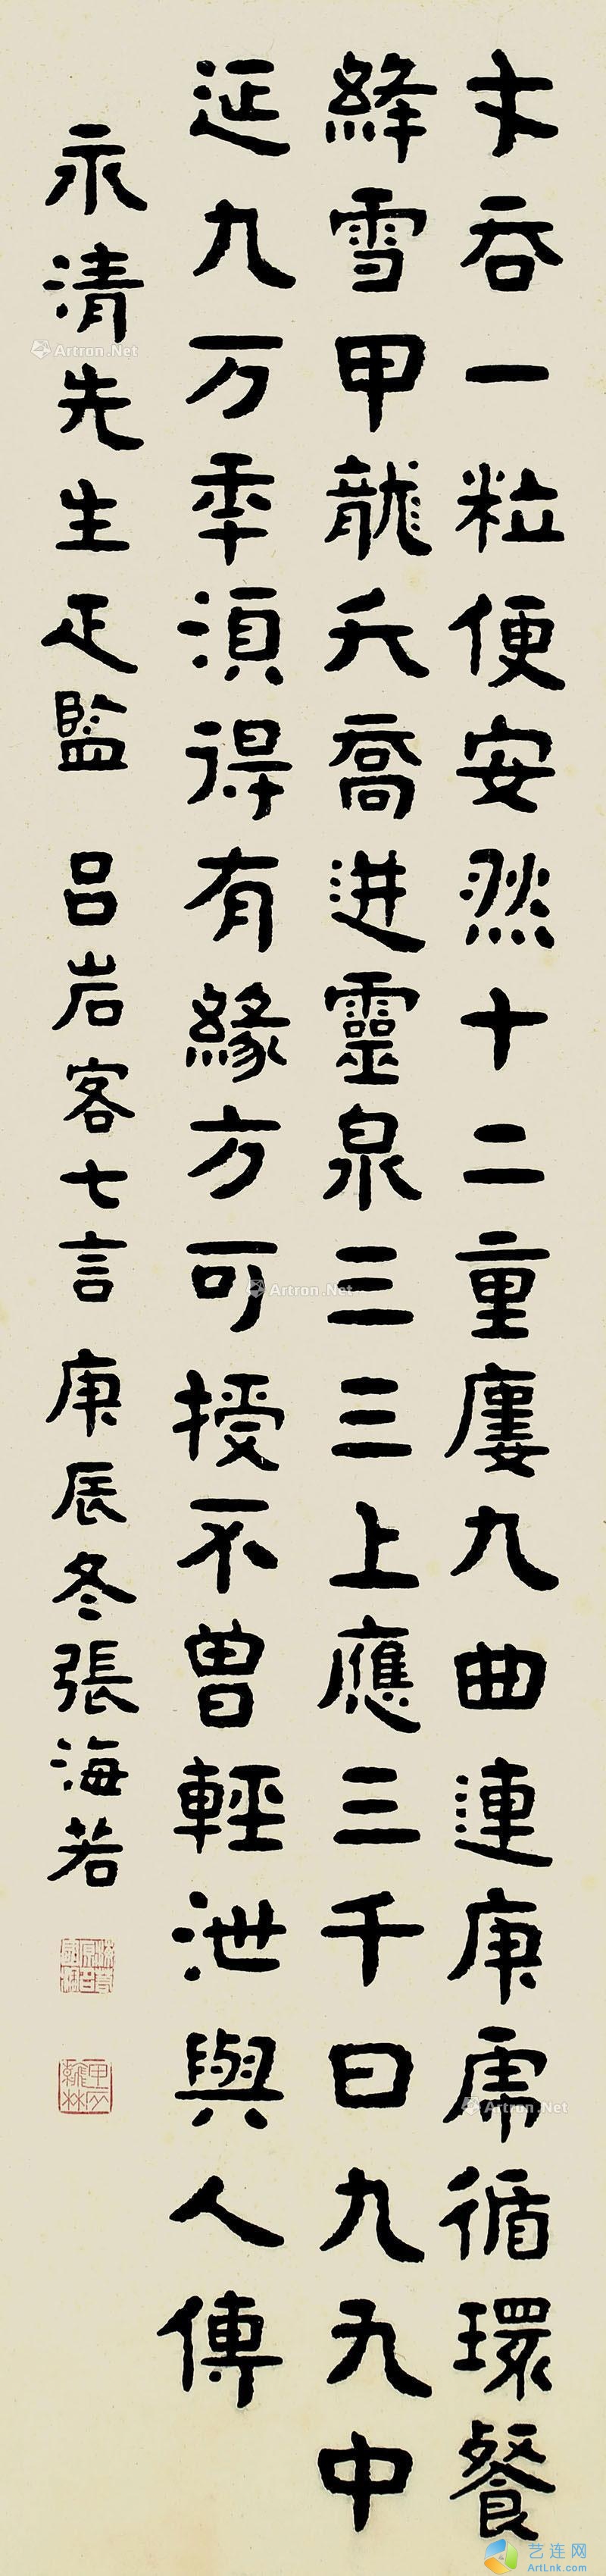 才吞一粒便安然十二重廔九曲連庚虎循環餐
絳雪甲龍夭喬迸靈泉三三上應三千日九九中
延九万年須得有緣方可授不曾輕泄與人傳
永清先生疋監 呂岩客七言 庚辰冬張海若
甲辰翰林
Artron.Net
Artron.Net
Artron.Net
艺连网
ArtLnk.com